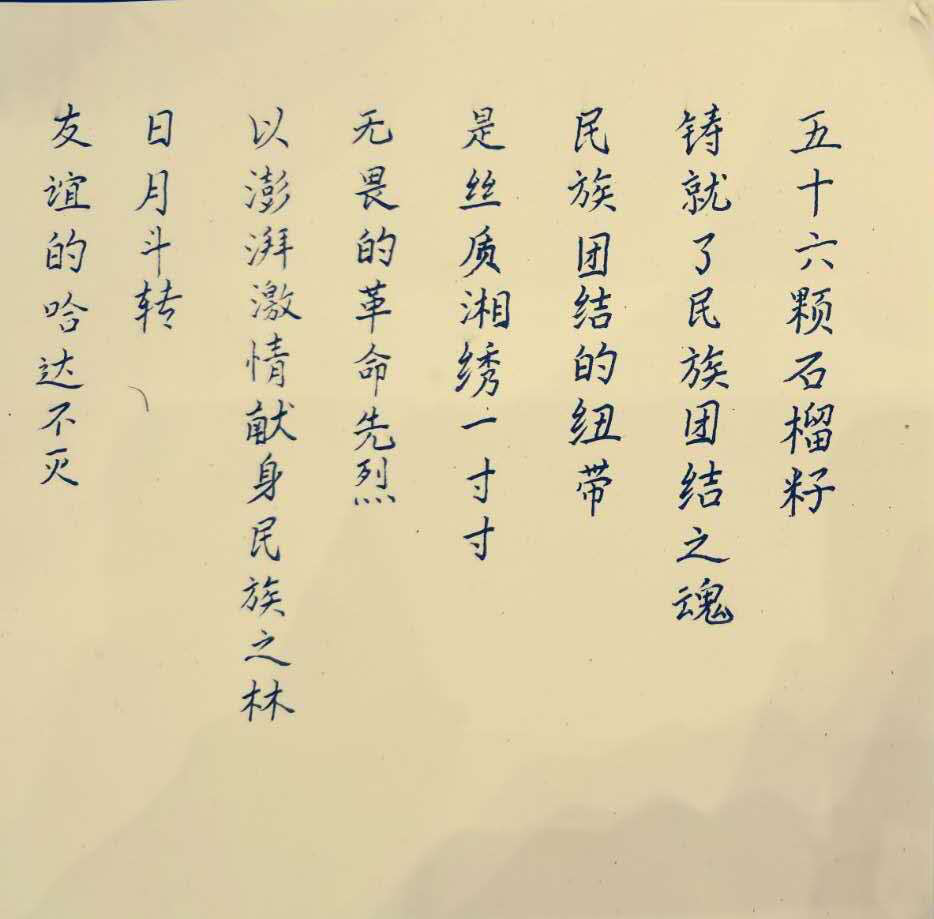 五十六颗石榴籽
铸就了民族团结之魂
民族团结的纽带
是丝质湘绣一寸寸
无畏的革命先烈
以澎湃激情献身民族之林
日月斗转
友谊的哈达不灭